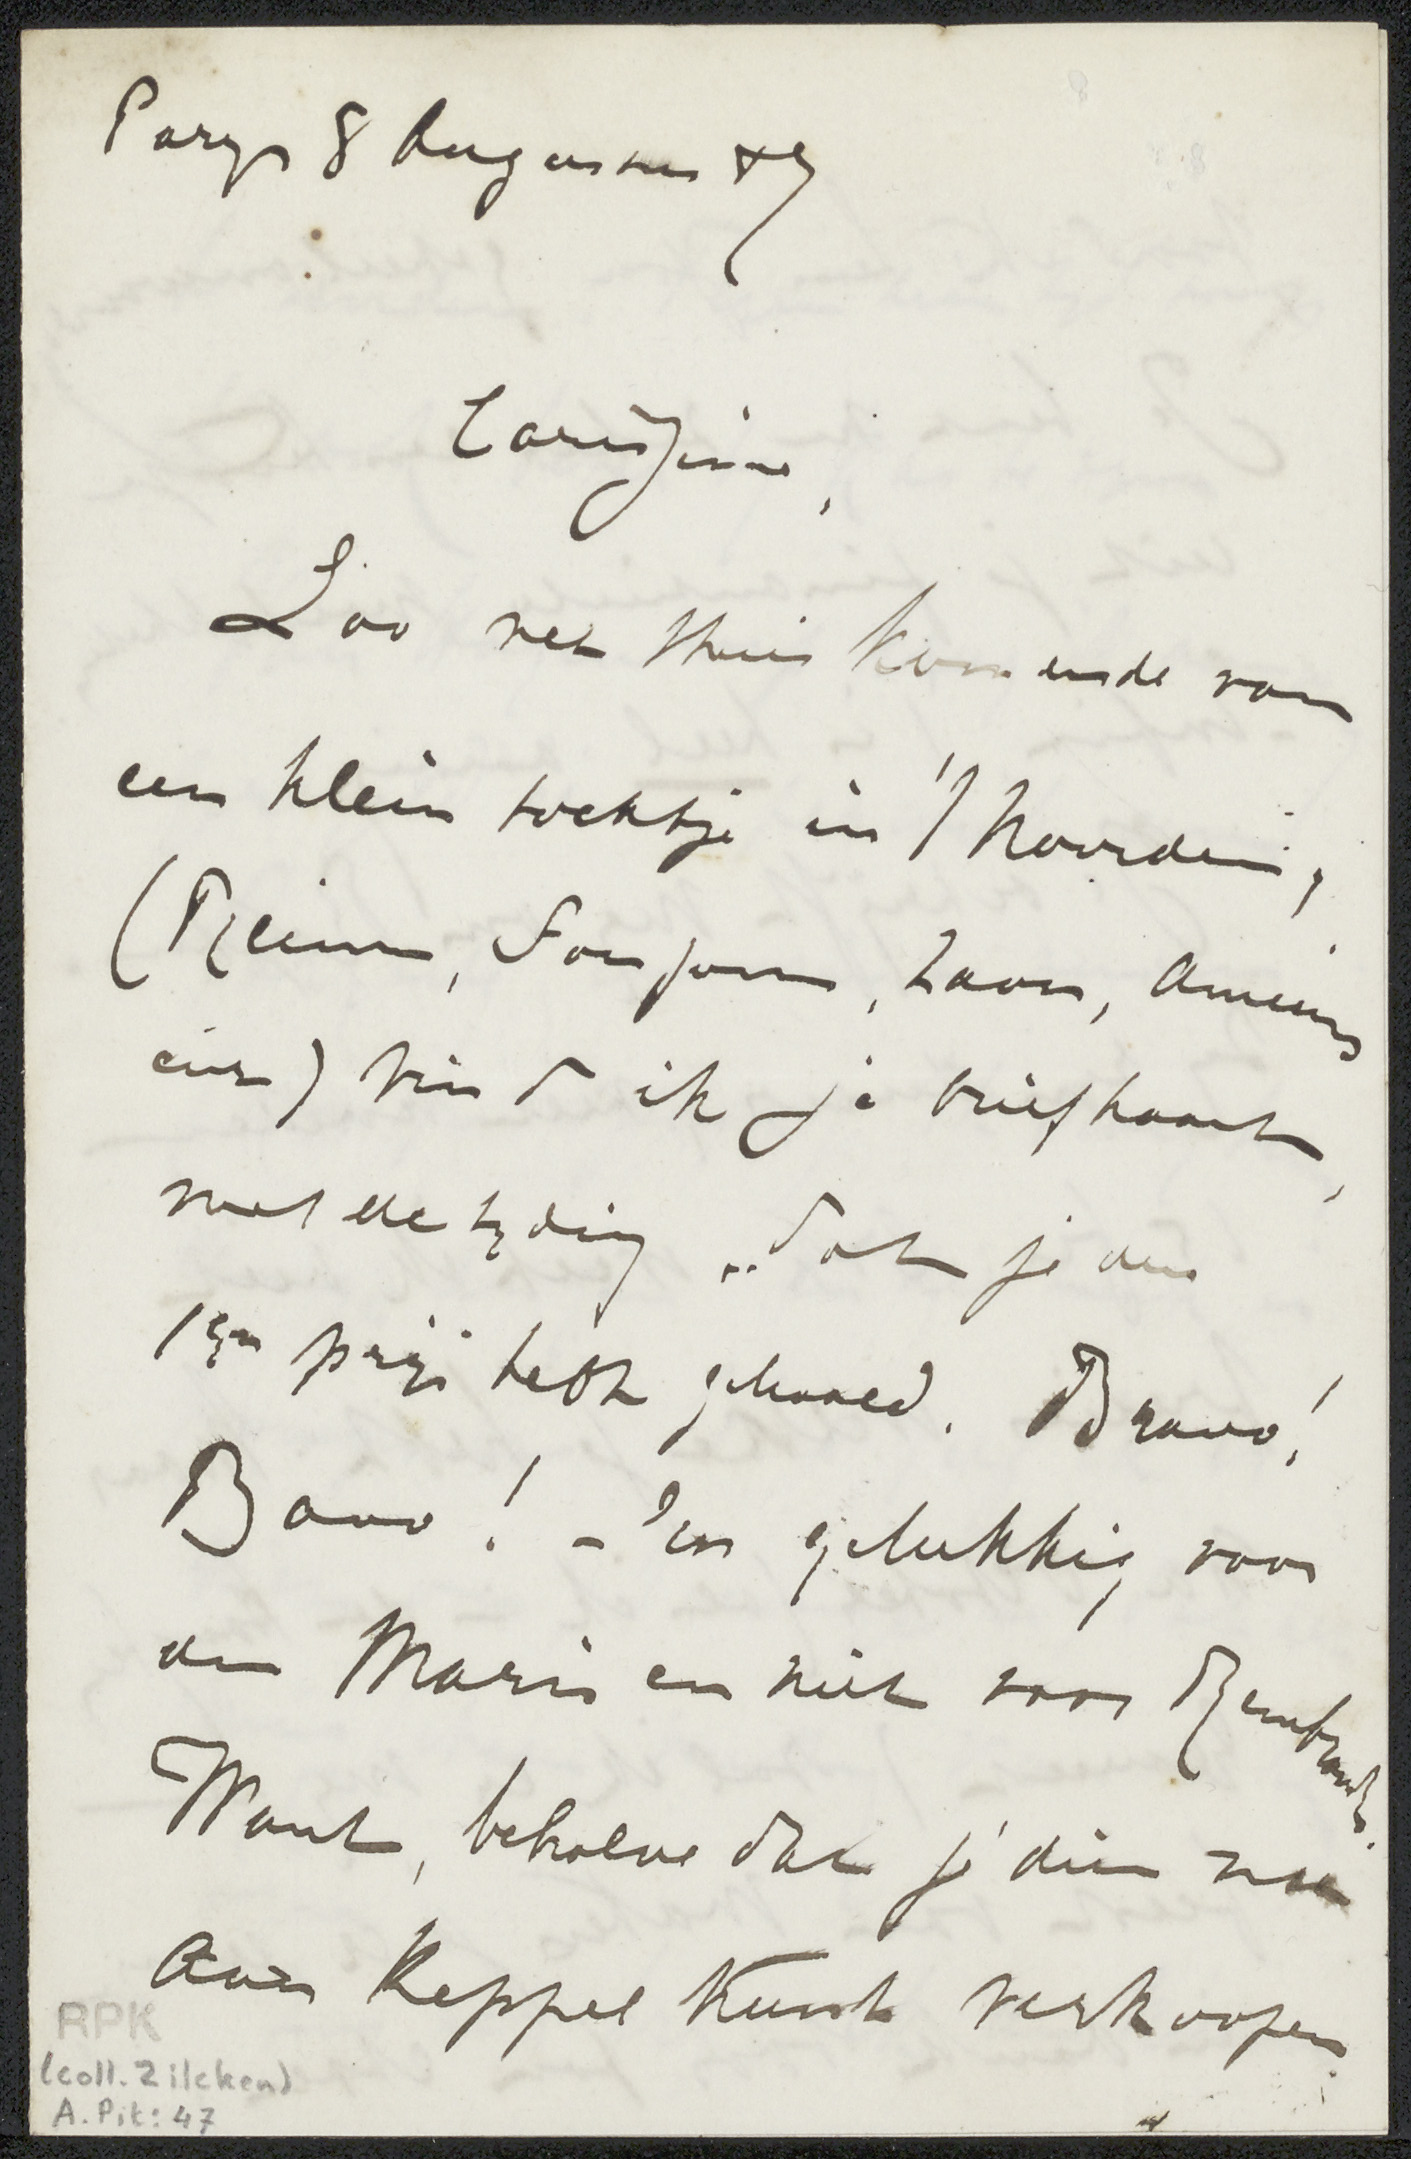 Parys 8 Augustus 89
Carissime,
Zoo net thuis komende van
een klein tochtje in 't Noorden,
(Reims, Soissons, Laon, Amiens
enz) vind ik je briefkaart,
met de tyding .. dat je den
1en prijs hebt gehaald. Bravo!
Bravo! - En gelukkig voor
den Maris en niet voor Rembrandt.
Want, behalve dat je dien nu
aan Keppel kunt verkoopen
RPK
(coll. Zilcken)
A. Pit: 47